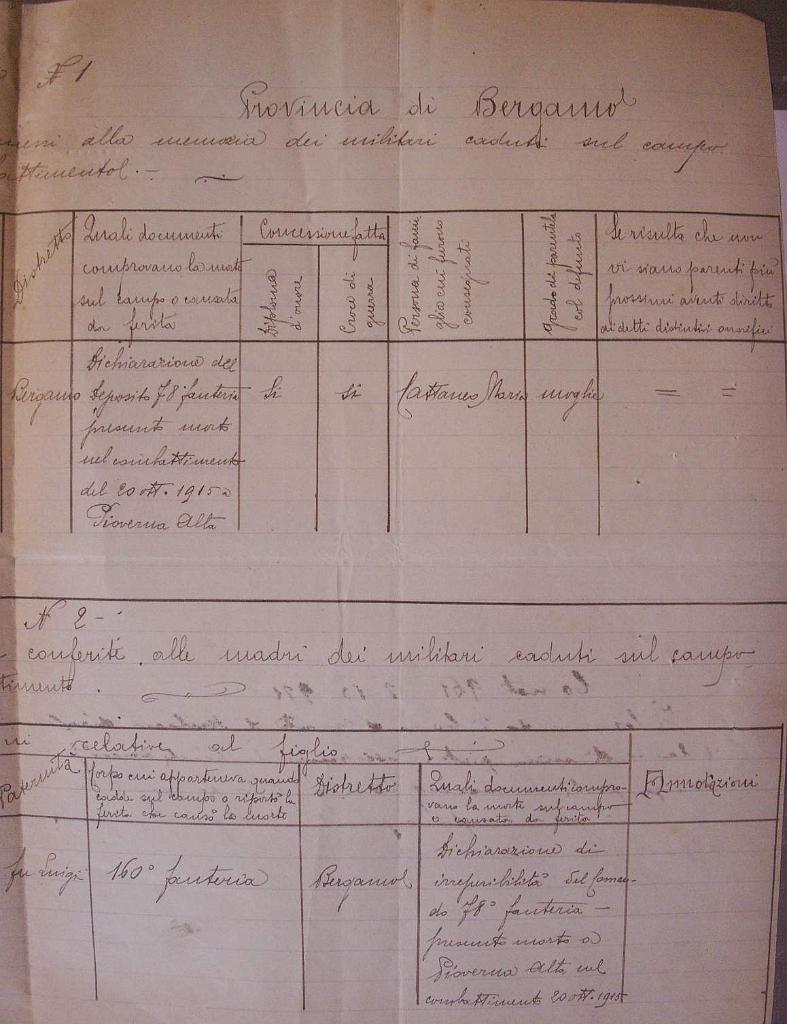 N 1
Provincia di Bergamo
alla memoria dei militari caduti sul campo
attimento. -
Distretto
Quali documenti
comprovano la morte
sul campo o causata
da ferita
Concessione fatta
Diploma
d'onore
Croce di
guerra
Persona di fami
glia cui furono
consegnati
Grado di parentela
col defunto
Se risulta che non
vi siano parenti più
prossimi aventi diritto
ai detti distintivi onorifici
Bergamo
Dichiarazione del
Deposito 78° fanteria
presunto morto
nel combattimento
del 20 ott. 1915 a
Pioverna Alta
Si
Si
Cattaneo Maria
moglie
=
=
N 2 -
conferite alle madri dei militari caduti sul campo
timento.
relative al figlio
Paternità
Corpo cui apparteneva quando
cadde sul campo o riportò la
ferita che causò la morte
Distretto
Quali documenti compro-
vano la morte sul campo
o causata da ferita
Annotazioni
fu Luigi
160° fanteria
Bergamo
Dichiarazione di
irreperibilità del Coman-
do 78° fanteria -
presunto morto a
Pioverna Alta nel
combattimento 20 ott. 1915